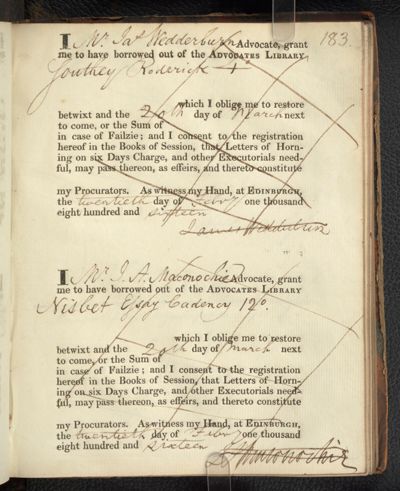 183.
I Mr. Jas Wedderburn Advocate, grant
me to have borrowed out of the ADVOCATES LIBRARY
Southey Roderick
which I oblige me to restore
betwixt and the 20th day of March next
to come, or the Sum of
in case of Failzie; and I consent to the registration
hereof in the Books of Session, that Letters of Horn-
ing on six Days Charge, and other Executorials need-
ful, may pass thereon, as effeirs, and thereto constitute
my Procurators. As witness my Hand, at EDINBURGH,
the twentieth day of Febry one thousand
eight hundred and sixteen
James Wedderburn
I Mr. J. A. Maconochie Advocate, grant
me to have borrowed out of the ADVOCATES LIBRARY
Nisbet Essay Cadency 12o.
which I oblige me to restore
betwixt and the 20th day of March next
to come, or the Sum of
in case of Failzie; and I consent to the registration
hereof in the Books of Session, that Letters of Horn-
ing on six Days Charge, and other Executorials need-
ful, may pass thereon, as effeirs, and thereto constitute
my Procurators. As witness my Hand, at EDINBURGH,
the twentieth day of Febry one thousand
eight hundred and sixteen
Maconochie